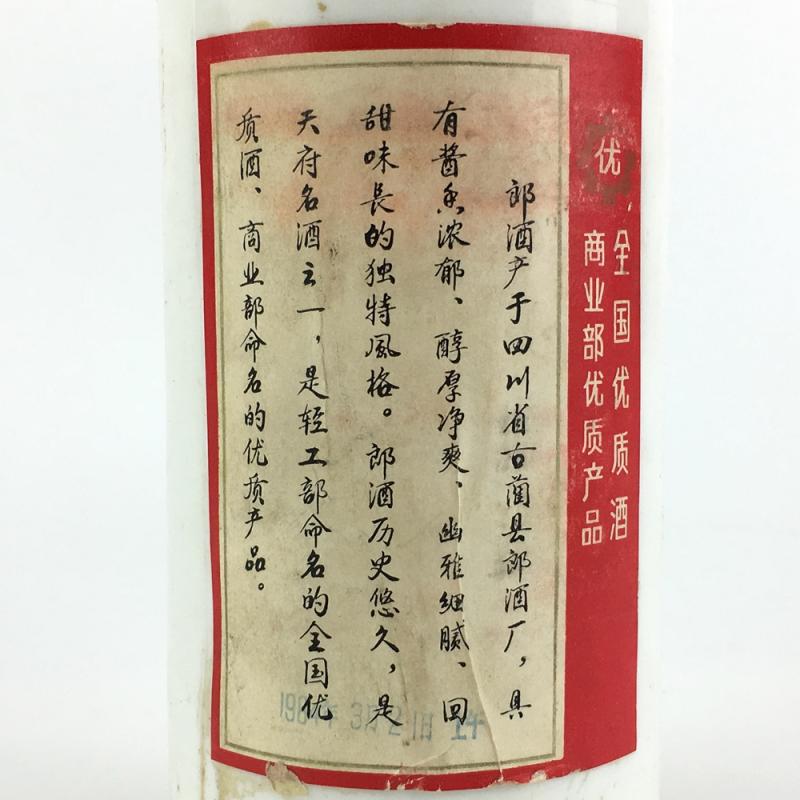 优
全国优质酒
商业部优质产品
郎酒产于四川省古蔺县郎酒厂，具
有酱香浓郁、醇厚净爽、幽雅细腻、回
甜味長的独特風格。郎酒历史悠久，是
天府名酒之一，是轻工部命名的全国优
质酒、商业部命名的优质产品。
1984年3月21日